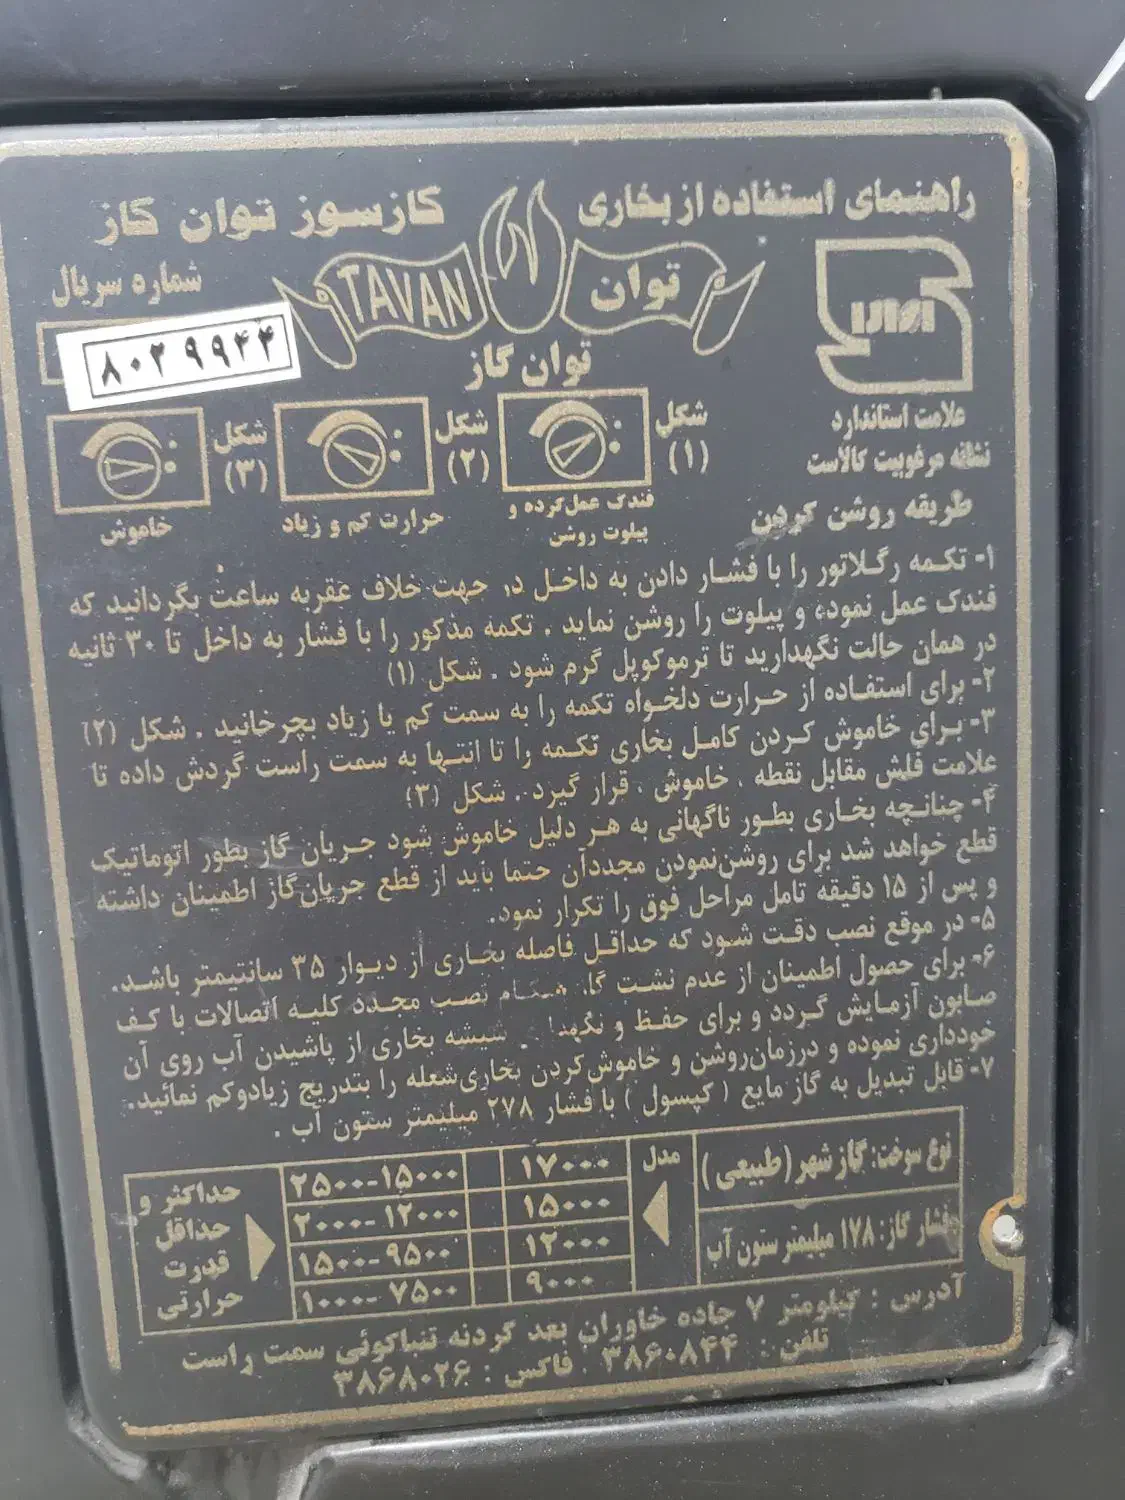 راهنمای استفاده از بخاری گازسوز توان گاز
شماره سریال
۸۰۲۹۹۴۴
TAVAN توان
توان گاز
علامت استاندارد
نشانه مرغوبیت کالاست
شکل (۱)
فندک عمل کرده و
پیلوت روشن
شکل (۲)
حرارت کم و زیاد
شکل (۳)
خاموش
طریقه روشن کردن
۱- تکمه رگلاتور را با فشار دادن به داخل در جهت خلاف عقربه ساعت بگردانید که
فندک عمل نموده و پیلوت را روشن نماید . تکمه مذکور را با فشار به داخل تا ۳۰ ثانیه
در همان حالت نگهدارید تا ترموکوپل گرم شود . شکل (۱)
۲- برای استفاده از حرارت دلخواه تکمه را به سمت کم یا زیاد بچرخانید . شکل (۲)
۳- برای خاموش کردن کامل بخاری تکمه را تا انتها به سمت راست گردش داده تا
علامت فلش مقابل نقطه ، خاموش ، قرار گیرد . شکل (۳)
۴- چنانچه بخاری بطور ناگهانی به هر دلیل خاموش شود جریان گاز بطور اتوماتیک
قطع خواهد شد برای روشن‌نمودن مجددآن حتما باید از قطع جریان‌گاز اطمینان داشته
و پس از ۱۵ دقیقه تامل مراحل فوق را تکرار نمود.
۵- در موقع نصب دقت شود که حداقل فاصله بخاری از دیوار ۳۵ سانتیمتر باشد.
۶- برای حصول اطمینان از عدم نشت گاز هنگام نصب مجدد کلیه اتصالات با کف
صابون آزمایش گردد و برای حفظ و شیشه بخاری از پاشیدن آب روی آن
خودداری نموده و درزمان‌روشن و خاموش‌کردن بخاری‌شعله را بتدریج زیادوکم نمائید.
۷- قابل تبدیل به گاز مایع ( کپسول ) با فشار ۲۷۸ میلیمتر ستون آب .
نوع سوخت: گاز شهر (طبیعی)
فشار گاز: ۱۷۸ میلیمتر ستون آب
مدل
۱۷۰۰۰ ۲۵۰۰-۱۵۰۰۰
۱۵۰۰۰ ۲۰۰۰-۱۲۰۰۰
۱۲۰۰۰ ۱۵۰۰-۹۵۰۰
۹۰۰۰ ۱۰۰۰-۷۵۰۰
حداکثر و
حداقل
قدرت
حرارتی
آدرس : کیلومتر ۷ جاده خاوران بعد گردنه تنباکوئی سمت راست
تلفن : ۳۸۶۰۸۴۴ فاکس : ۳۸۶۸۰۲۶